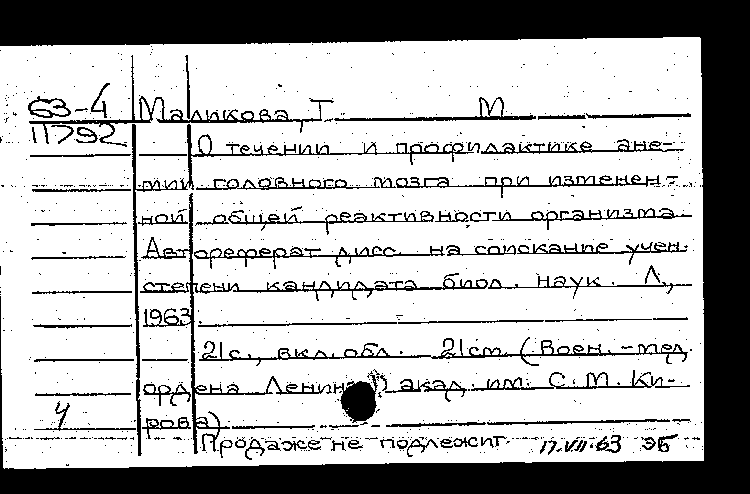 63-4 Маликова, Т. М
11792
О течении и профилактике ане-
мии головного мозга при изменен-
ной общей реактивности организма.
Автореферат дисс. на соискание учен.
степени кандидата биол. наук. Л.,
1963.
21 с., вкл. обл. 21 см. (Воен.-мед.
ордена Ленина акад. им. С. М. Ки-
рова)
Ч
Продаже не подлежит. 17.VII.63 ЭБ